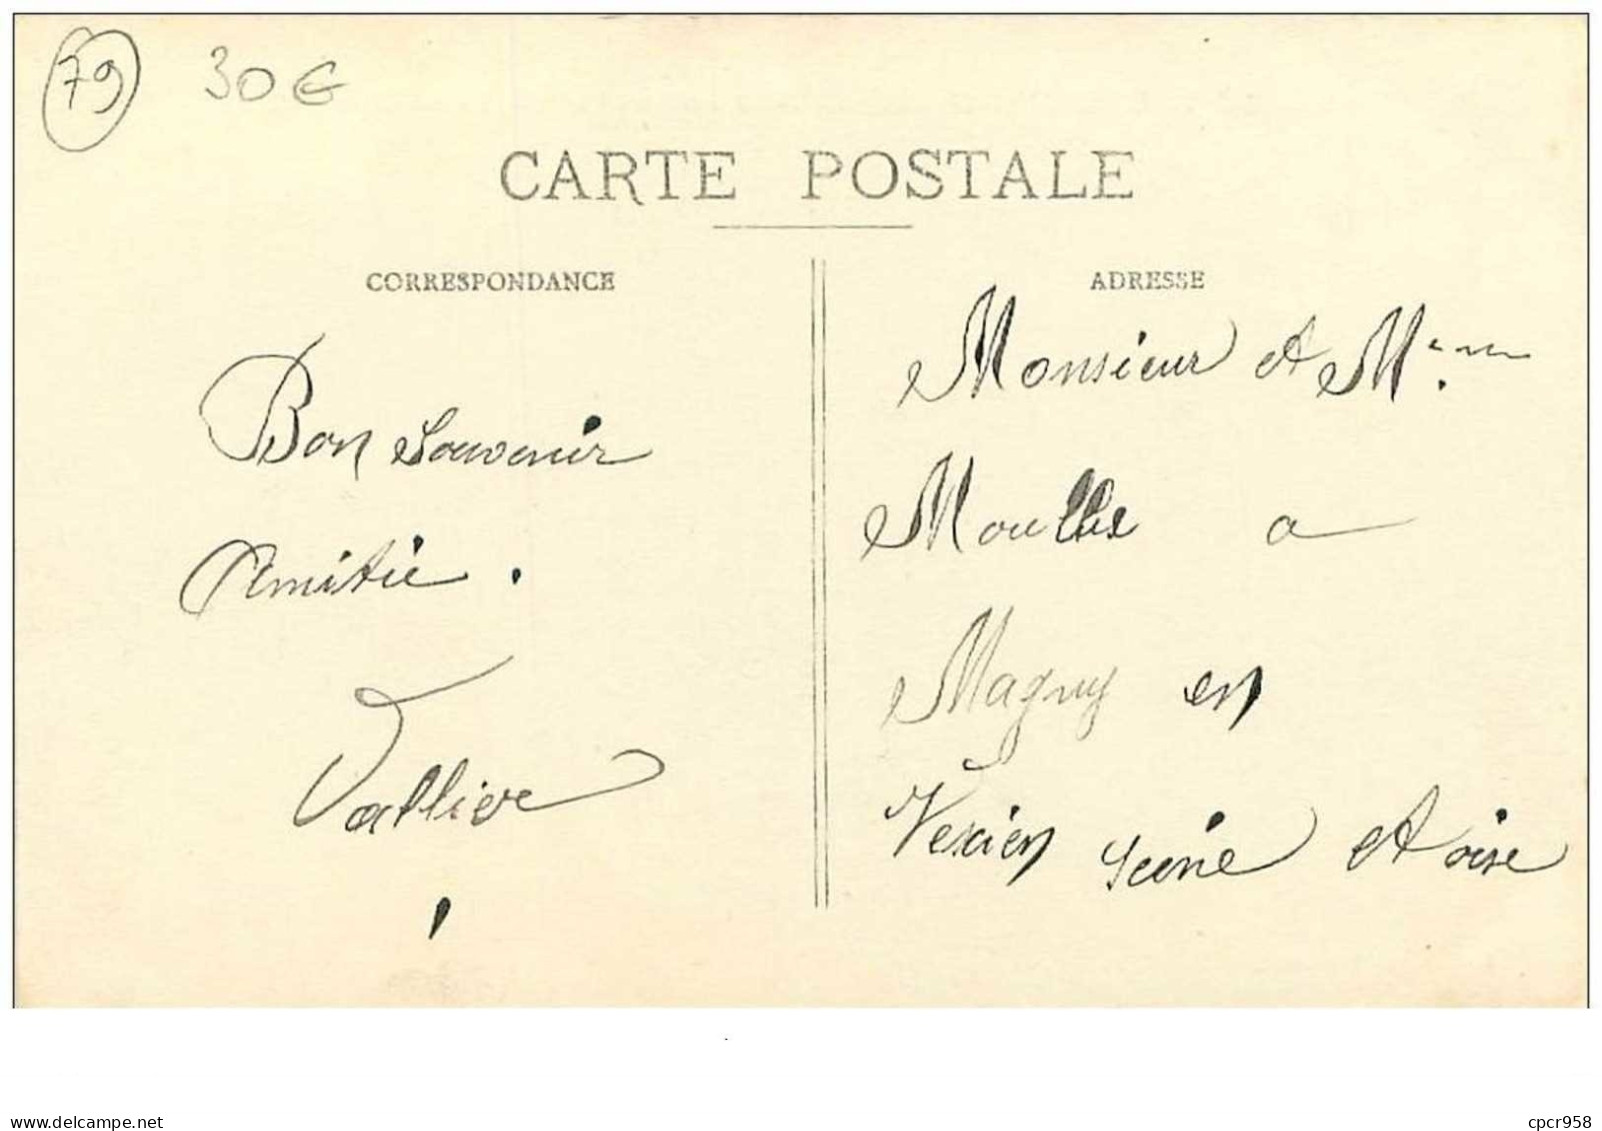 79 30€
CARTE POSTALE
CORRESPONDANCE
Bon Souvenir
Amitié.
Vallier
ADRESSE
Monsieur et Mme
Moulle a
Magny en
Vexien Seine et oise
delcampe.net
cpcr958